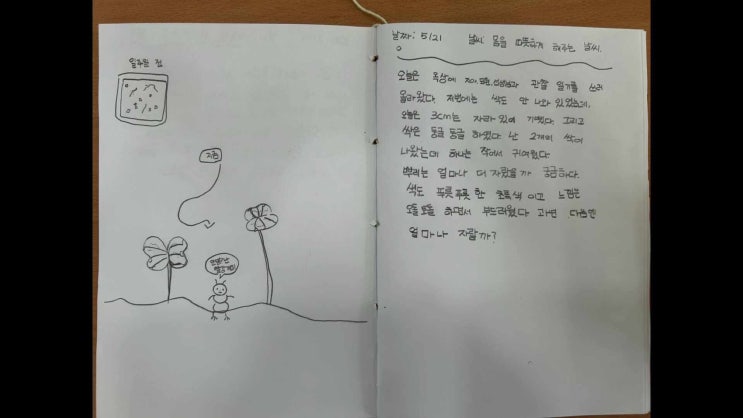 일주일 전
지금
날짜: 5/21 날씨: 몸을 따뜻하게 해주는 날씨.
오늘은 옥상에 선생님과 관찰 일기를 쓰러
올라왔다. 저번에는 싹도 안 나와 있었는데,
오늘은 3cm는 자라 있어 기뻤다. 그리고
싹은 동글 동글 하였다. 난 2개의 싹이
나왔는데 하나는 작아서 귀여웠다
뿌리는 얼마나 더 자랐을까 궁금하다.
싹도 푸릇푸릇 한 초록색 이고 느낌은
오돌토돌 하면서 부드러웠다. 과연 다음엔
얼마나 자랄까?